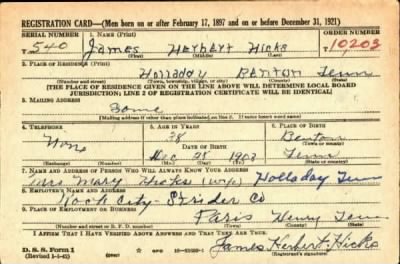 REGISTRATION CARD—(Men born on or after February 17, 1897 and on or before December 31, 1921)
SERIAL NUMBER 1. NAME (Print) ORDER NUMBER
T- 540 James Herbert Hicks 10203
(First) (Middle) (Last)
2. PLACE OF RESIDENCE (Print)
Holladay Benton Tenn
(Number and street) (Town, township, village, or city) (County) (State)
[THE PLACE OF RESIDENCE GIVEN ON THE LINE ABOVE WILL DETERMINE LOCAL BOARD JURISDICTION; LINE 2 OF REGISTRATION CERTIFICATE WILL BE IDENTICAL]
3. MAILING ADDRESS
Same
[Mailing address if other than place indicated on line 2. If same insert word same]
4. TELEPHONE 5. AGE IN YEARS 6. PLACE OF BIRTH
None 38 Benton
DATE OF BIRTH (Town or county)
Dec 28 1903 Tenn
(Exchange) (Number) (Mo.) (Day) (Yr.) (State or country)
7. NAME AND ADDRESS OF PERSON WHO WILL ALWAYS KNOW YOUR ADDRESS
Mrs Mary Hicks (wife) Holladay Tenn
8. EMPLOYER'S NAME AND ADDRESS
Rock City - Strider Co
9. PLACE OF EMPLOYMENT OR BUSINESS
Paris Henry Tenn
(Number and street or R. F. D. number) (Town) (County) (State)
I AFFIRM THAT I HAVE VERIFIED ABOVE ANSWERS AND THAT THEY ARE TRUE.
D. S. S. Form 1
(Revised 1-1-42) (over)
James Herbert Hicks
(Registrant's signature)